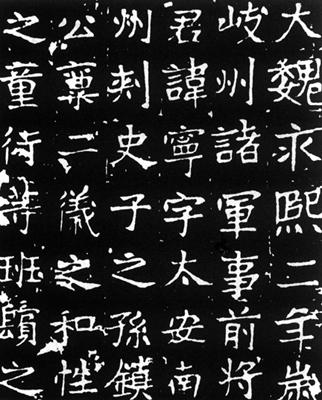 大魏永熙二年歲
岐州諸軍事前將
君諱寧字太安南
州刺史子之孫鎮
公稟二儀之和性
之童待等班之